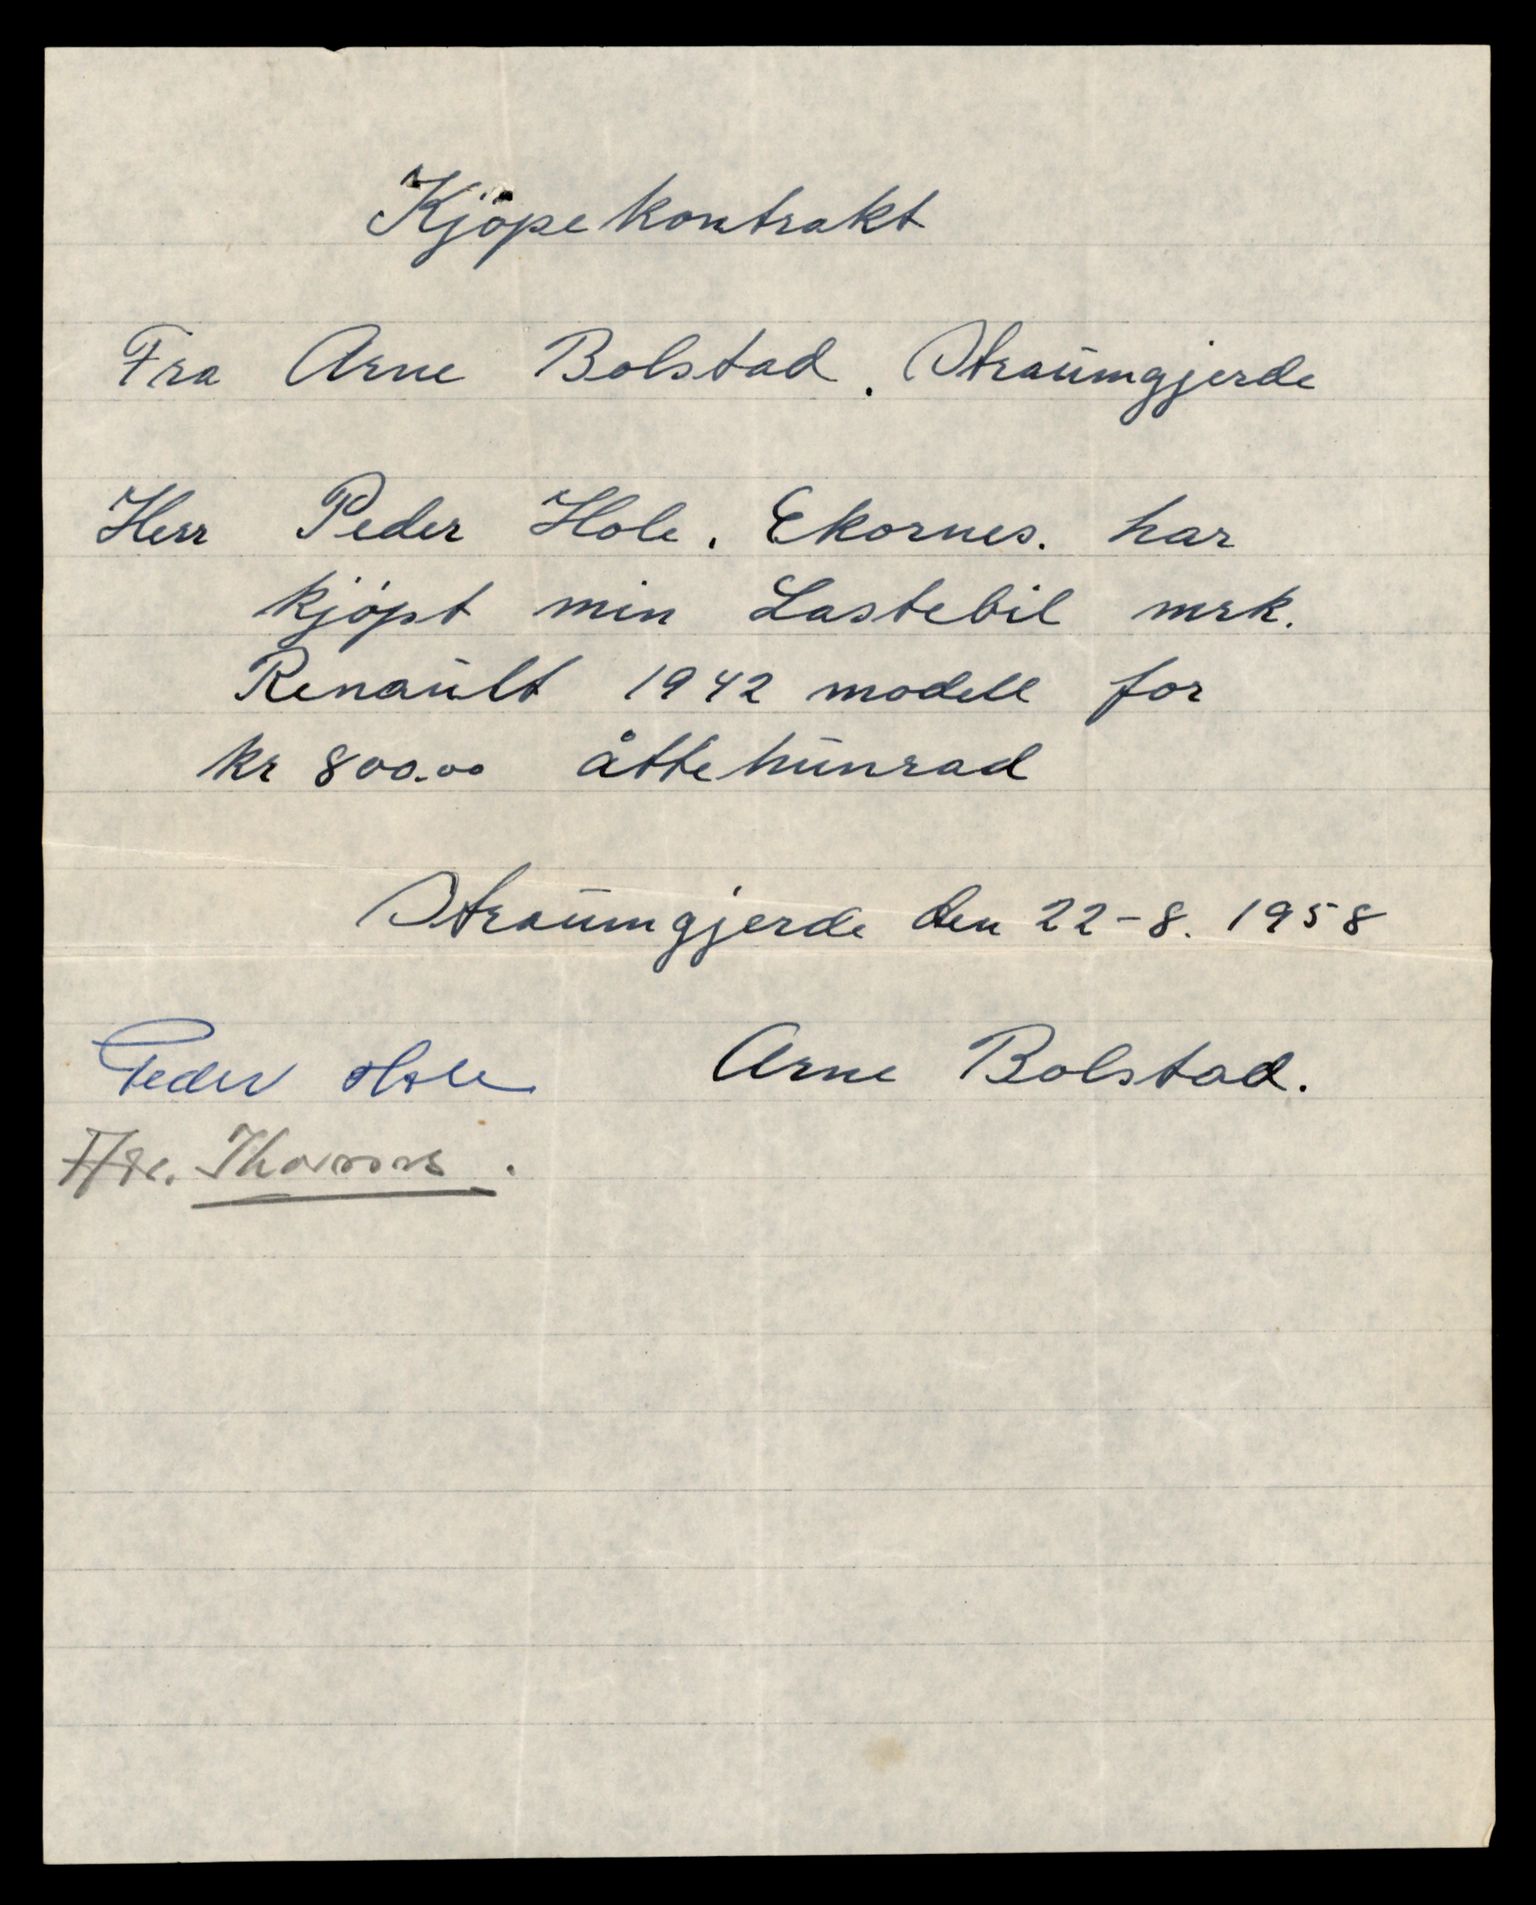 Kjöpekontrakt
Fra Arne Bolstad. Straumgjerde
Herr Peder Hole. Ekornes. har
kjöpt min Lastebil mrk.
Renault 1942 modell for
kr 800.00 åttehunrad
Straumgjerde den 22-8. 1958
Peder Hole Arne Bolstad.